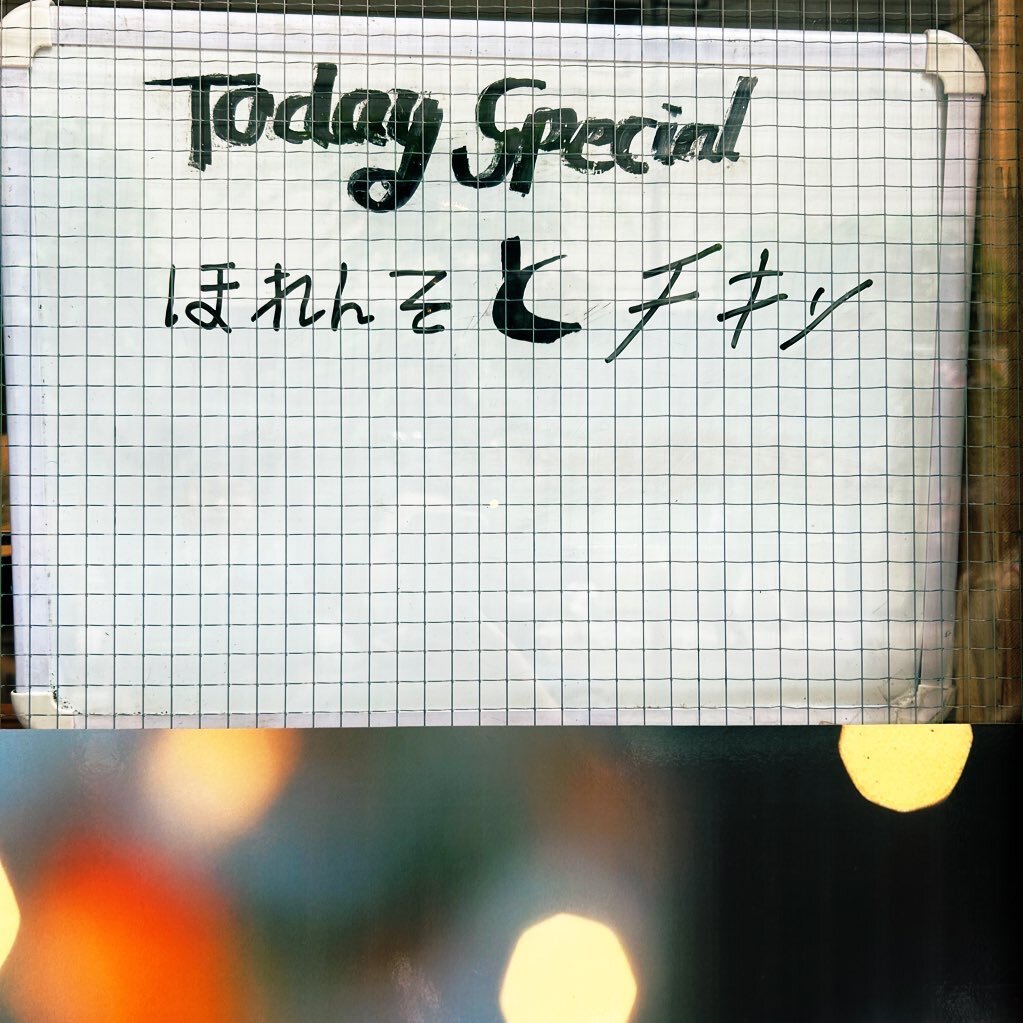 Today Special
ほれんそ と チキン